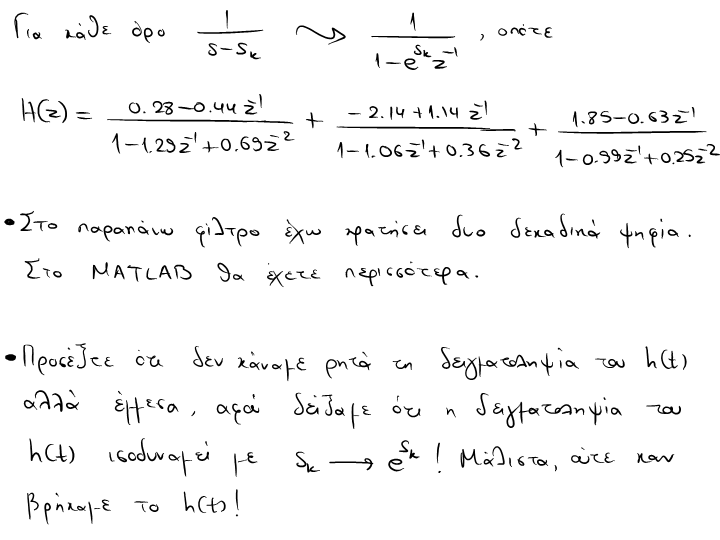 Για κάθε όρο 1/(s-s_k) ⇝ 1/(1-e^{s_k}z^{-1}) , οπότε
H(z) = (0.28-0.44z^{-1})/(1-1.29z^{-1}+0.69z^{-2}) + (-2.14+1.14z^{-1})/(1-1.06z^{-1}+0.36z^{-2}) + (1.85-0.63z^{-1})/(1-0.99z^{-1}+0.25z^{-2})
• Στο παραπάνω φίλτρο έχω κρατήσει δυο δεκαδικά ψηφία.
Στο MATLAB θα έχετε περισσότερα.
• Προσέξτε ότι δεν κάναμε ρητά τη δειγματοληψία του h(t)
αλλά έμμεσα, αφού δείξαμε ότι η δειγματοληψία του
h(t) ισοδυναμεί με s_k → e^{s_k} ! Μάλιστα, ούτε καν
βρήκαμε το h(t)!